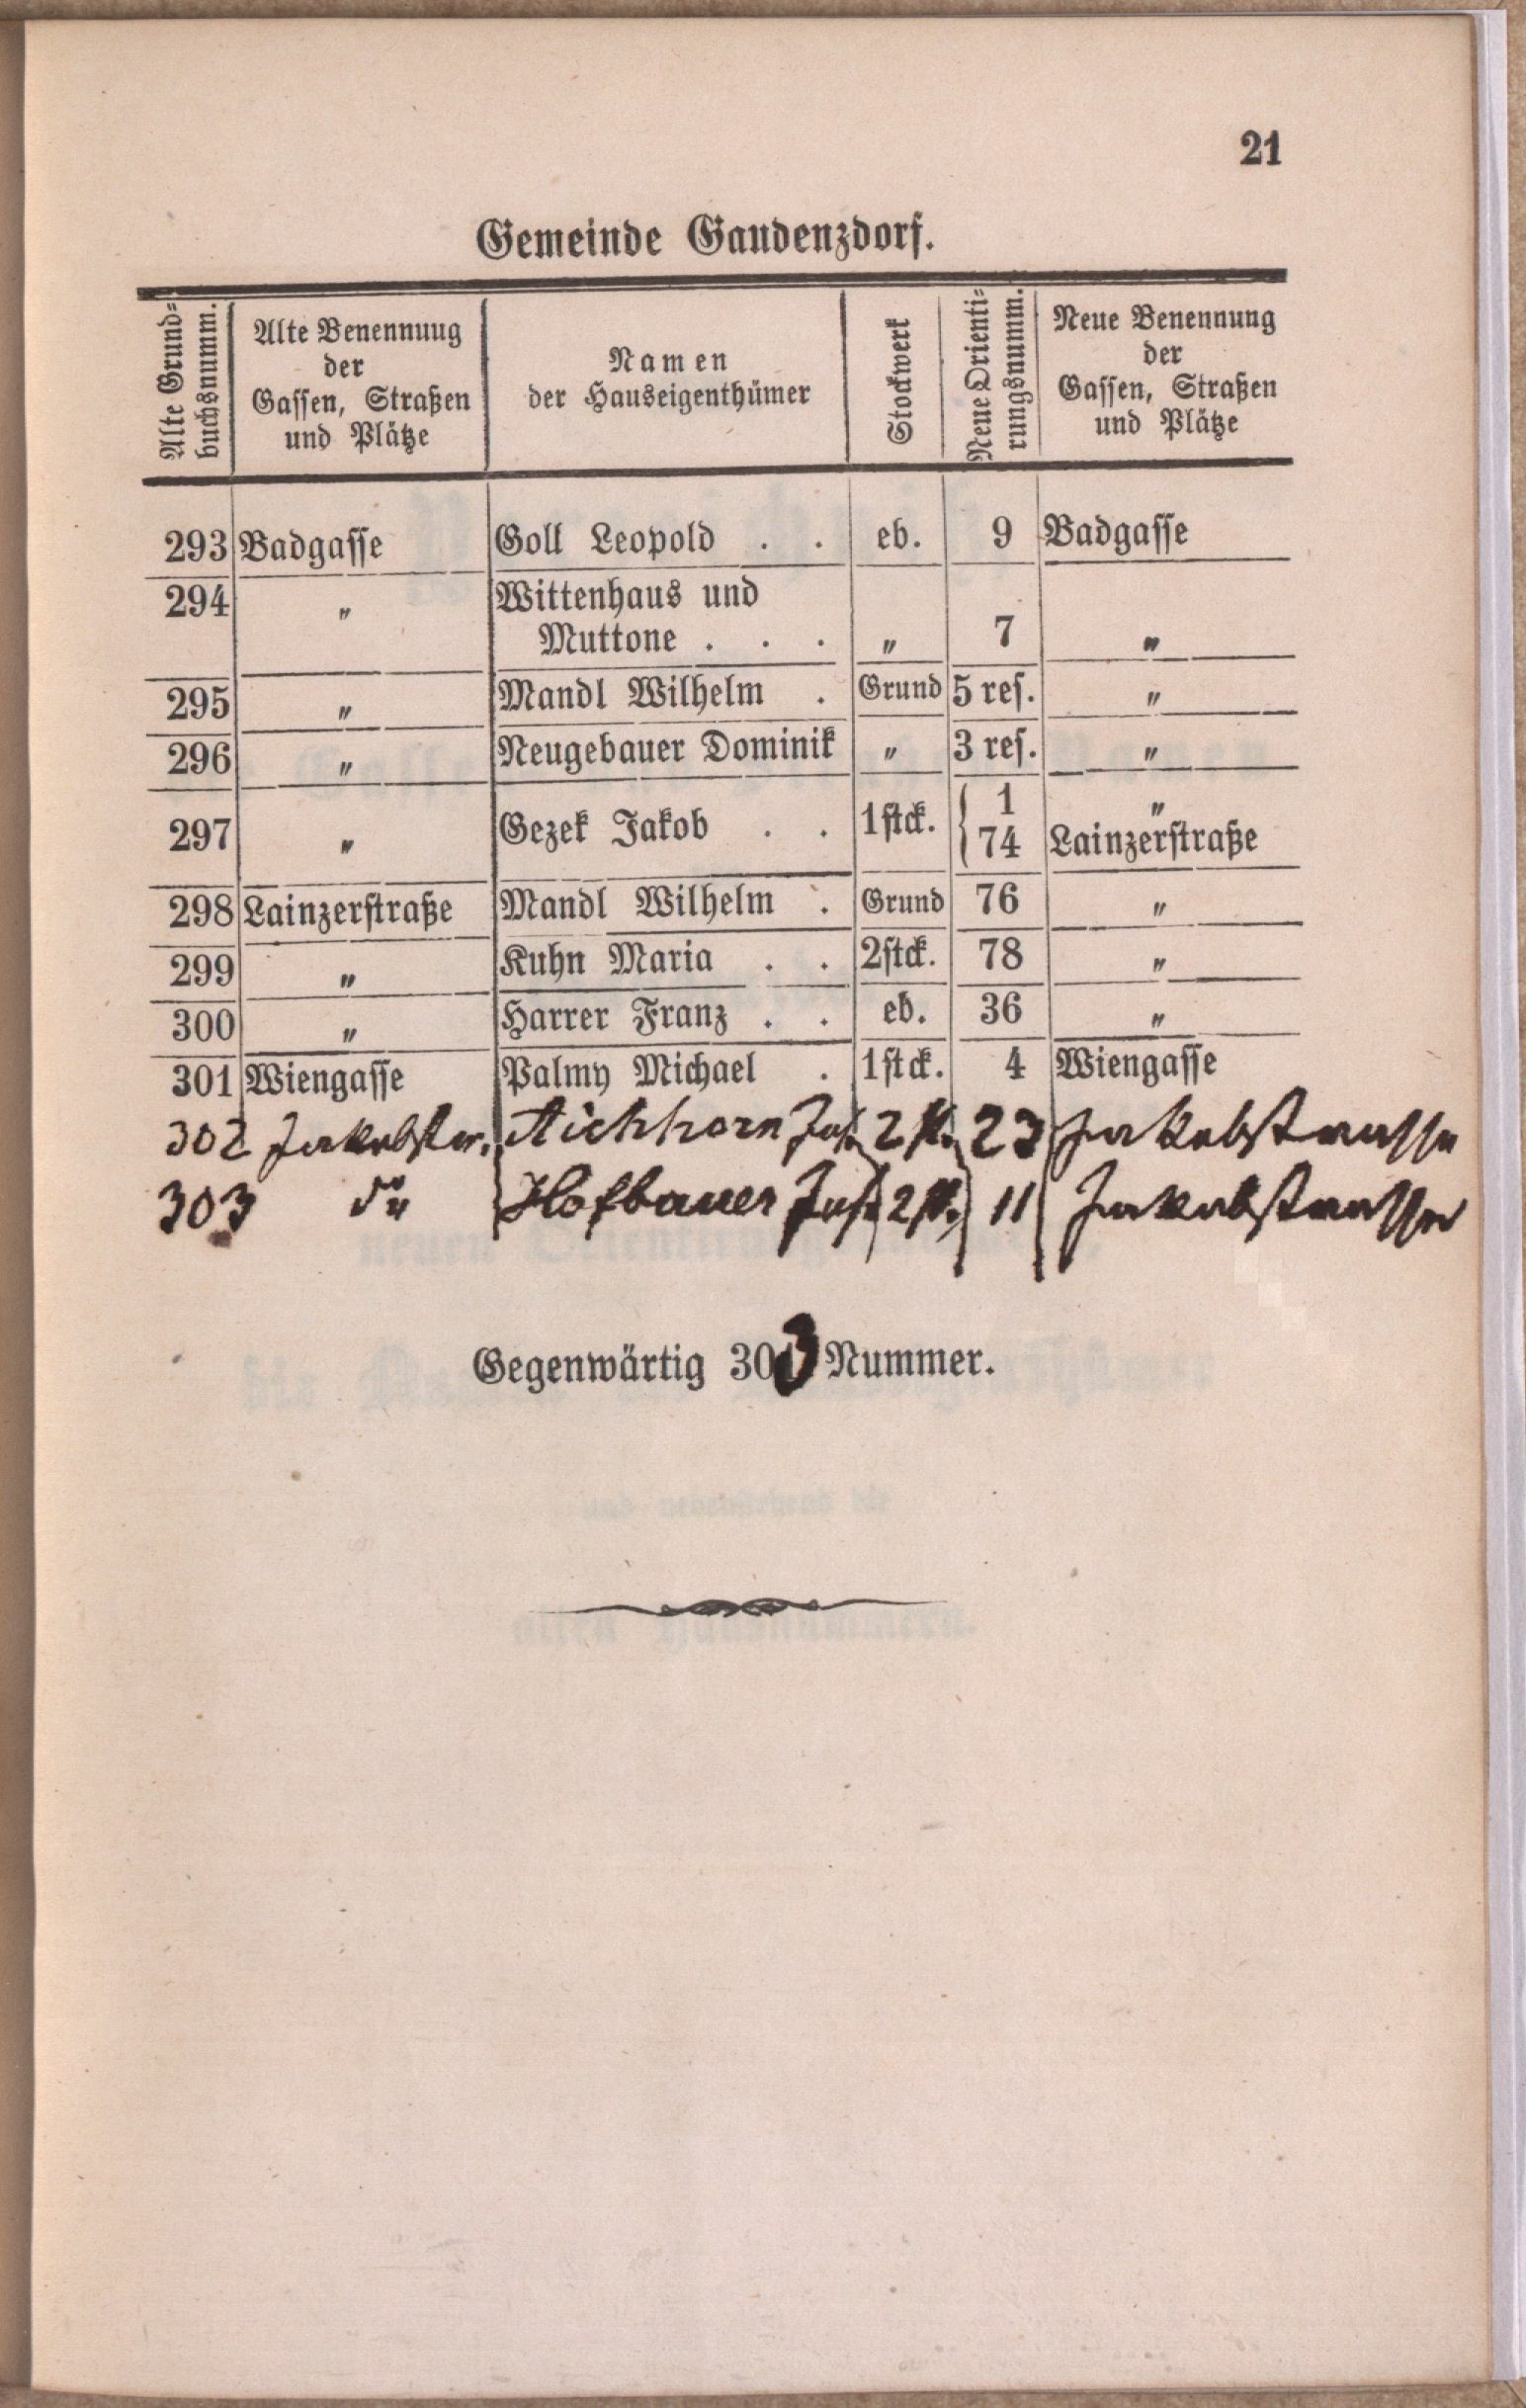 21
Gemeinde Gaudenzdorf.
Alte Grund-
buchsnumm.
Alte Benennung
der
Gassen, Straßen
und Plätze
Namen
der Hauseigenthümer
Stockwerk
Neue Orienti-
rungsnumm.
Neue Benennung
der
Gassen, Straßen
und Plätze
293 Badgasse Goll Leopold . . eb. 9 Badgasse
294 „ Wittenhaus und
Muttone . . . „ 7 „
295 „ Mandl Wilhelm . Grund 5 res. „
296 „ Neugebauer Dominik „ 3 res. „
297 „ Gezek Jakob . . 1stck. { 1 „
74 Lainzerstraße
298 Lainzerstraße Mandl Wilhelm . Grund 76 „
299 „ Kuhn Maria . . 2stck. 78 „
300 „ Harrer Franz . . eb. 36 „
301 Wiengasse Palmy Michael . 1stck. 4 Wiengasse
302 Jakobstr. Aichhorn Jos. 2 st. 23 Jakobstrasse
303 do Hofbauer Jos. 2 st. 11 Jakobstrasse
Gegenwärtig 303 Nummer.